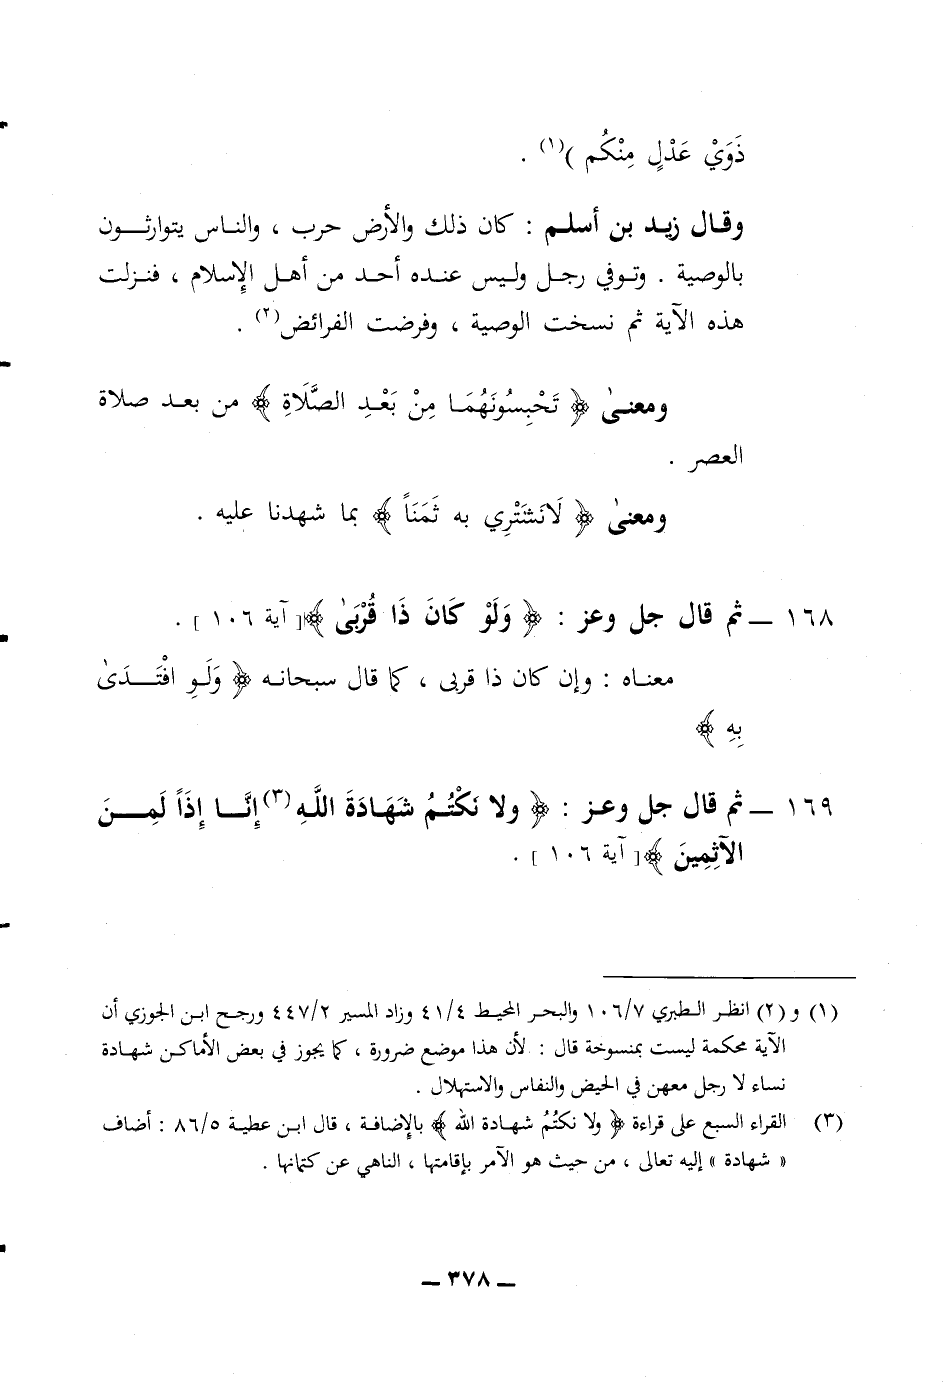 ذَوَيْ عَدْلٍ مِنْكُم )(١) .
وقال زيد بن أسلم : كان ذلك والأرض حرب ، والناس يتوارثون
بالوصية . وتوفي رجل وليس عنده أحد من أهل الإسلام ، فنزلت
هذه الآية ثم نسخت الوصية ، وفرضت الفرائض(٢) .
ومعنىٰ ﴿ تَحْبِسُونَهُمَا مِنْ بَعْدِ الصَّلَاةِ ﴾ من بعد صلاة
العصر .
ومعنىٰ ﴿ لَانَشْتَرِي به ثَمَنَاً ﴾ بما شهدنا عليه .
١٦٨ ــ ثم قال جل وعز : ﴿ وَلَوْ كَانَ ذَا قُرْبَىٰ ﴾[ آية ١٠٦ ] .
معناه : وإن كان ذا قربى ، كما قال سبحانه ﴿ وَلَوِ افْتَدَىٰ
بِهِ ﴾
١٦٩ ــ ثم قال جل وعز : ﴿ ولا نَكْتُمُ شَهَادَةَ اللَّهِ(٣) إِنَّا إِذَاً لَمِنَ
الآثِمِينَ ﴾[ آية ١٠٦ ] .
(١) و(٢) انظر الطبري ١٠٦/٧ والبحر المحيط ٤١/٤ وزاد المسير ٤٤٧/٢ ورجح ابن الجوزي أن
الآية محكمة ليست بمنسوخة قال : لأن هذا موضع ضرورة ، كما يجوز في بعض الأماكن شهادة
نساء لا رجل معهن في الحيض والنفاس والاستهلال .
(٣) القراء السبع على قراءة ﴿ ولا نكتُمُ شهادة الله ﴾ بالإضافة ، قال ابن عطية ٨٦/٥ : أضاف
« شهادة » إليه تعالى ، من حيث هو الآمر بإقامتها ، الناهي عن كتمانها .
ــ ٣٧٨ ــ